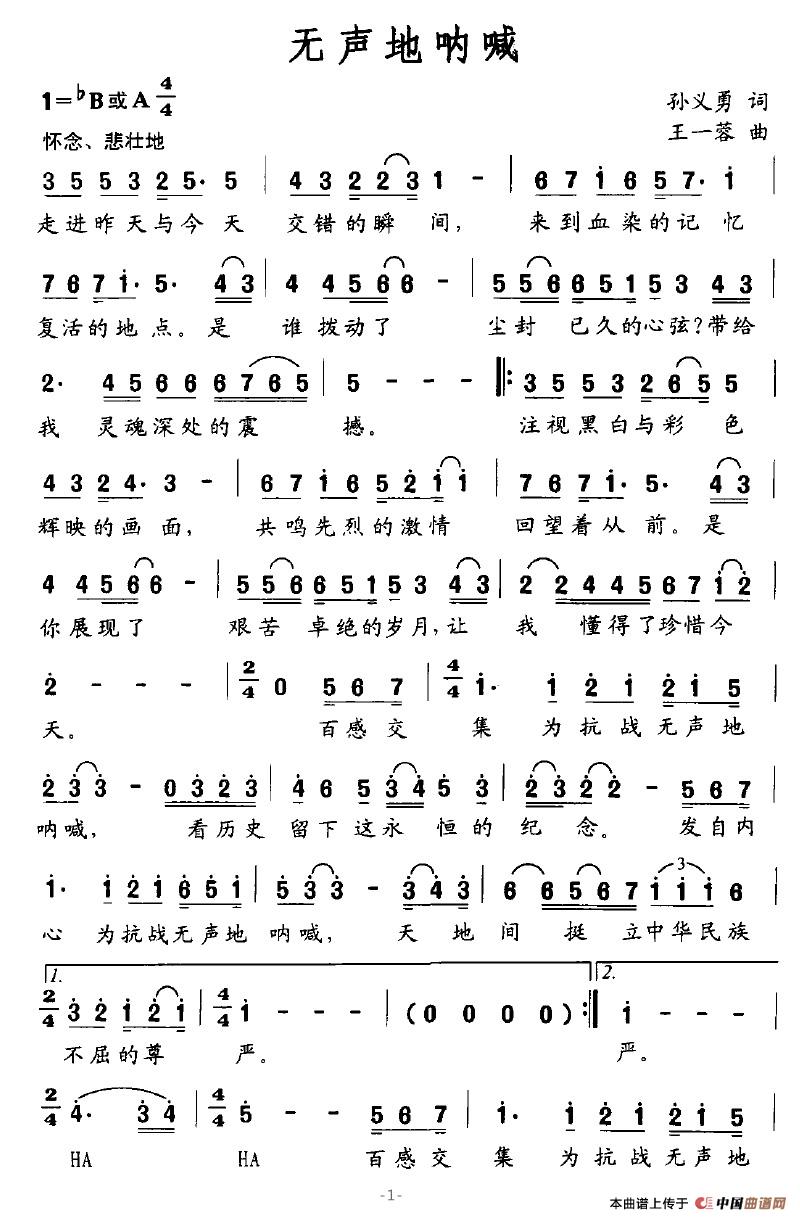 无声地呐喊
1=♭B或A 4/4
孙义勇 词
怀念、悲壮地
王一蓉 曲
3 5 5 3 2 5· 5 | 4 3 2 2 3 1 - | 6 7 1 6 5 7· 1 |
走进昨天与今天 交错的瞬间，来到血染的记忆
7 6 7 1· 5· 4 3 | 4 4 5 6 6 - | 5 5 6 6 5 1 5 3 4 3 |
复活的地点。是 谁拨动了 尘封 已久的心弦？带给
2· 4 5 6 6 6 7 6 5 | 5 - - - |: 3 5 5 3 2 6 5 5 |
我 灵魂深处的震 撼。 注视黑白与彩色
4 3 2 4· 3 - | 6 7 1 6 5 2 1 1 | 7 6 7 1· 5· 4 3 |
辉映的画面，共鸣先烈的激情 回望着从前。是
4 4 5 6 6 - | 5 5 6 6 5 1 5 3 4 3 | 2 2 4 4 5 6 7 1 2 |
你展现了 艰苦 卓绝的岁月，让 我 懂得了珍惜今
2 - - - | 2/4 0 5 6 7 | 4/4 1· 1 2 1 2 1 5 |
天。 百感交 集 为抗战无声地
2 3 3 - 0 3 2 3 | 4 6 5 3 4 5 3 | 2 3 2 2 - 5 6 7 |
呐喊， 看历史 留下这永恒的纪念。 发自内
1· 1 2 1 6 5 1 | 5 3 3 - 3 4 3 | 6 6 5 6 7 1 1 1 6 |
3
心 为抗战无声地 呐喊， 天地间 挺 立中华民族
1. 2.
2/4 3 2 1 2 1 | 4/4 1 - - - | (0 0 0 0) :| 1 - - - |
不屈的尊 严。 严。
2/4 4· 3 4 | 4/4 5 - - 5 6 7 | 1· 1 2 1 2 1 5 |
HA HA 百感交 集 为抗战无声地
-1-
本曲谱上传于 中国曲谱网